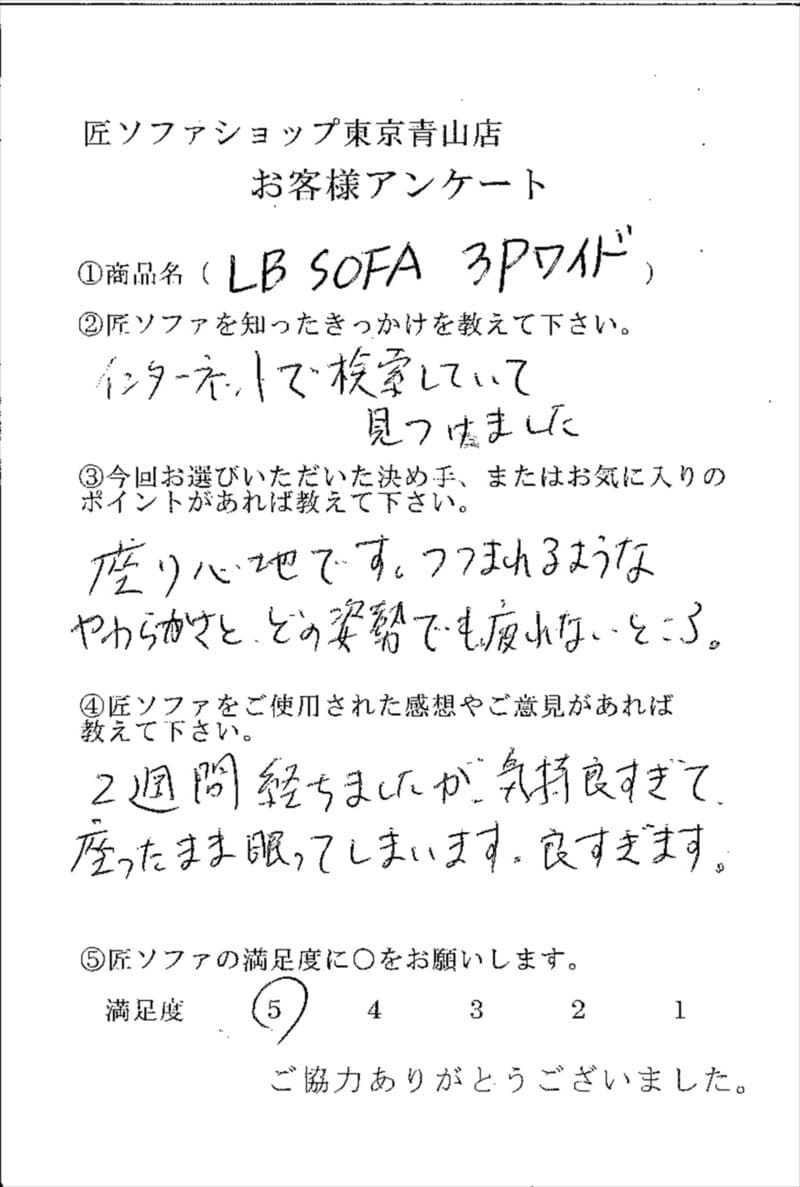 匠ソファショップ東京青山店
お客様アンケート
①商品名（ LB SOFA 3Pワイド ）
②匠ソファを知ったきっかけを教えて下さい。
インターネットで検索していて
見つけました
③今回お選びいただいた決め手、またはお気に入りの
ポイントがあれば教えて下さい。
座り心地です。つつまれるような
やわらかさと、どの姿勢でも疲れないところ。
④匠ソファをご使用された感想やご意見があれば
教えて下さい。
2週間経ちましたが、気持良すぎて、
座ったまま眠ってしまいます。良すぎます。
⑤匠ソファの満足度に〇をお願いします。
満足度 5 4 3 2 1
ご協力ありがとうございました。